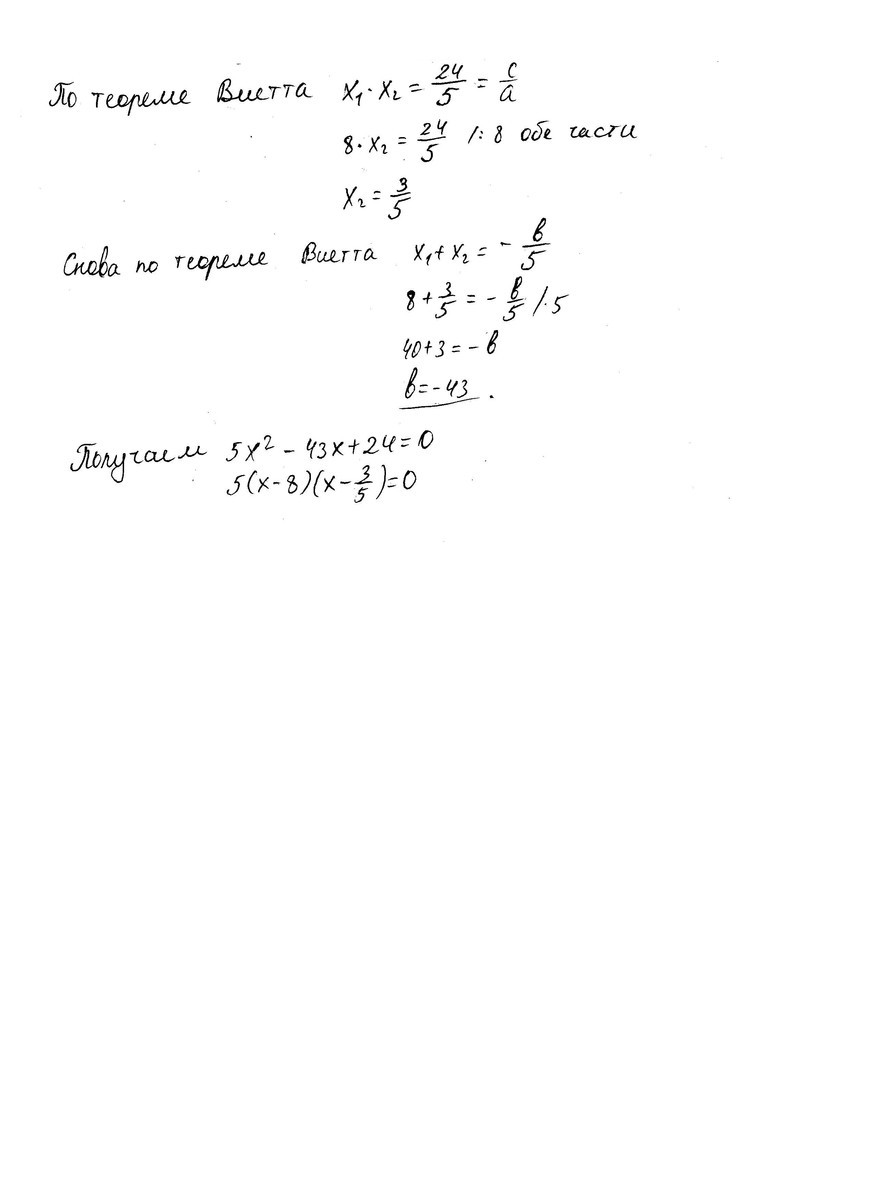 По теореме Виетта x₁·x₂ = 24/5 = c/a
8·x₂ = 24/5 /:8 обе части
x₂ = 3/5
Снова по теореме Виетта x₁+x₂ = - b/5
8 + 3/5 = - b/5 /·5
40+3 = - b
b = - 43 .
Получаем 5x² - 43x + 24 = 0
5(x-8)(x - 3/5) = 0